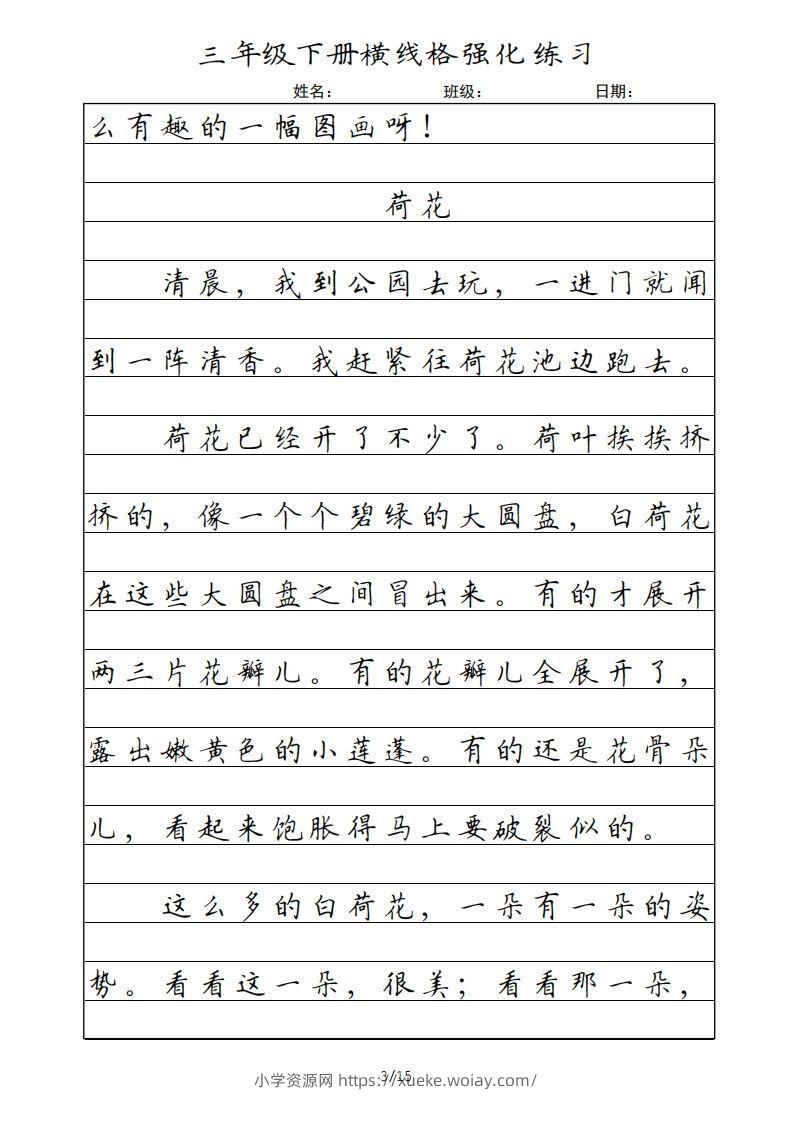 三年级下册横线格强化练习
姓名： 班级： 日期：
么有趣的一幅图画呀！
荷花
清晨，我到公园去玩，一进门就闻
到一阵清香。我赶紧往荷花池边跑去。
荷花已经开了不少了。荷叶挨挨挤
挤的，像一个个碧绿的大圆盘，白荷花
在这些大圆盘之间冒出来。有的才展开
两三片花瓣儿。有的花瓣儿全展开了，
露出嫩黄色的小莲蓬。有的还是花骨朵
儿，看起来饱胀得马上要破裂似的。
这么多的白荷花，一朵有一朵的姿
势。看看这一朵，很美；看看那一朵，
3/15
小学资源网 https://xueke.woiay.com/